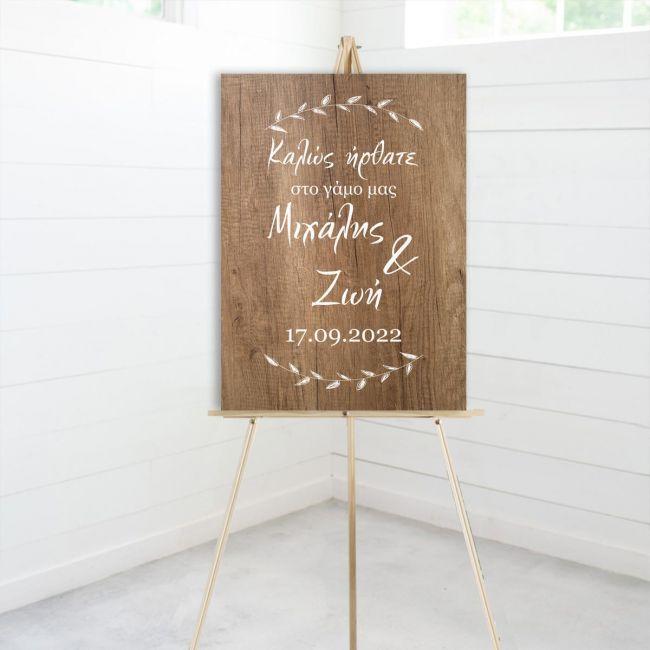 Καλώς ήρθατε
στο γάμο μας
Μιχάλης
&
Ζωή
17.09.2022